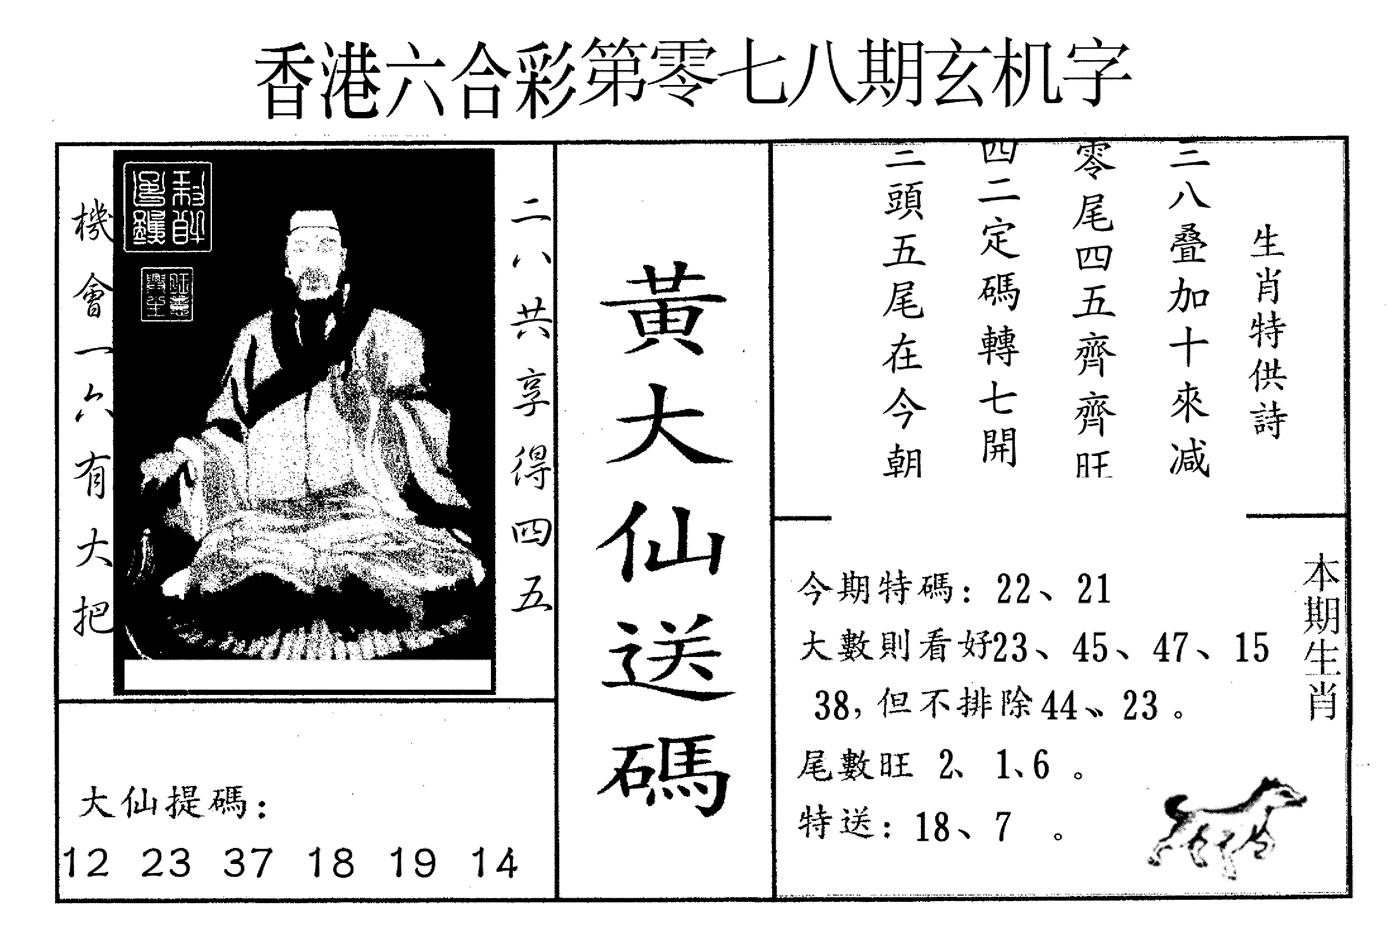 香港六合彩第零七八期玄机字
機會一六有大把
二八共享得四五
大仙提碼：
12 23 37 18 19 14
黃大仙送碼
生肖特供詩
三八叠加十來减
零尾四五齊齊旺
四二定碼轉七開
三頭五尾在今朝
本期生肖
今期特碼：22、21
大數則看好23、45、47、15
38，但不排除44、23。
尾數旺 2、1、6。
特送：18、7 。